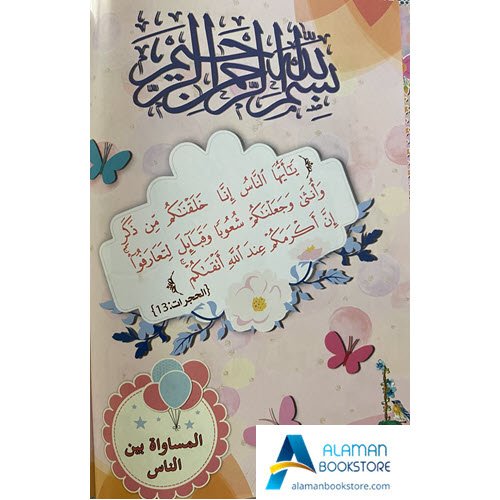 بسم الله الرحمن الرحيم
﴿ يَـٰٓأَيُّهَا النَّاسُ إِنَّا خَلَقْنَـٰكُم مِّن ذَكَرٍ
وَأُنثَىٰ وَجَعَلْنَـٰكُمْ شُعُوبًا وَقَبَآئِلَ لِتَعَارَفُوٓا۟ ۚ
إِنَّ أَكْرَمَكُمْ عِندَ اللَّهِ أَتْقَىٰكُمْ ۚ ﴾
{الحجرات:13}
المساواة بين
الناس
ALAMAN
BOOKSTORE
alamanbookstore.com